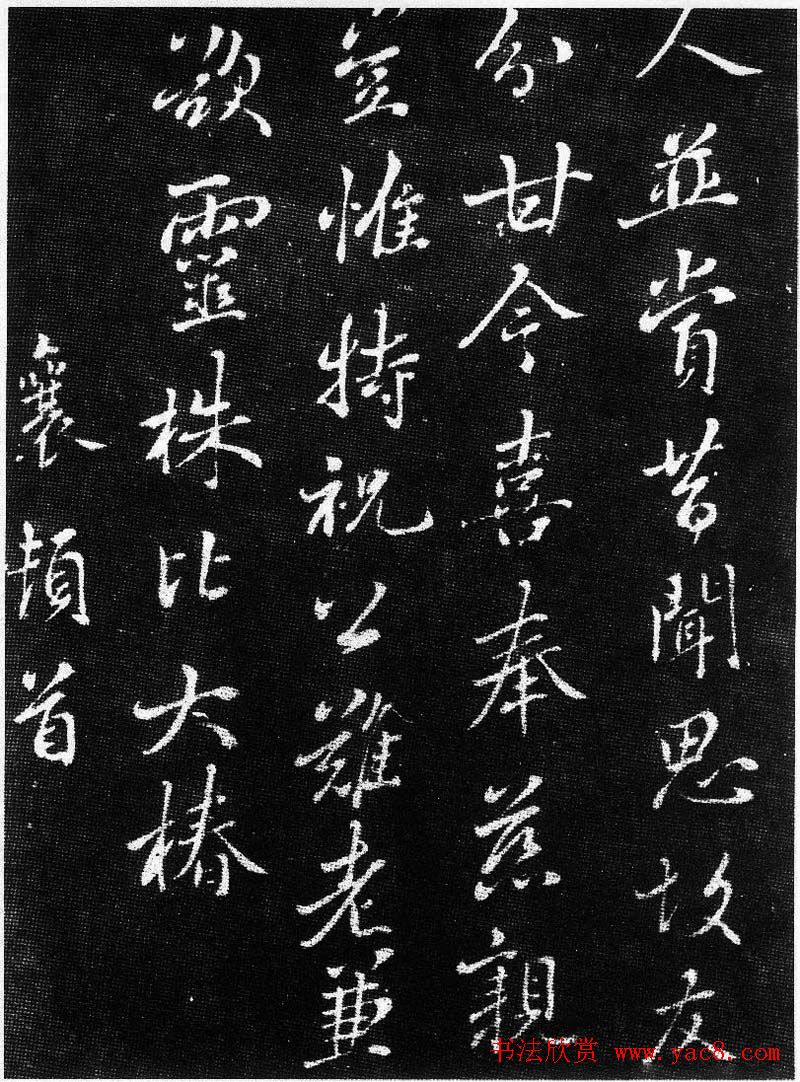 人並賞昔聞思故友
分甘今喜奉慈親
豈惟特祝公難老兼
欲靈株比大椿
襄頓首
书法欣赏 www.yac8.com